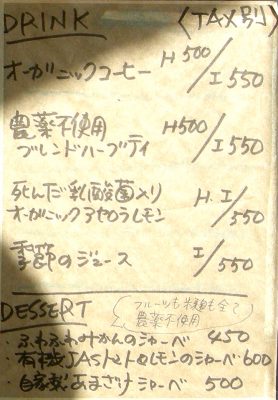 DRINK 〈TAX別〉
オーガニックコーヒー H 500/I 550
農薬不使用
ブレンドハーブティ H500/I 550
死んだ乳酸菌入り
オーガニックアセロラレモン H.I/550
季節のジュース I/550
DESSERT (フルーツも米麹も全て
農薬不使用)
・ふわふわみかんのシャーベ 450
・有機JASトマトとレモンのシャーベ 600
・自家製あまざけシャーベ 500